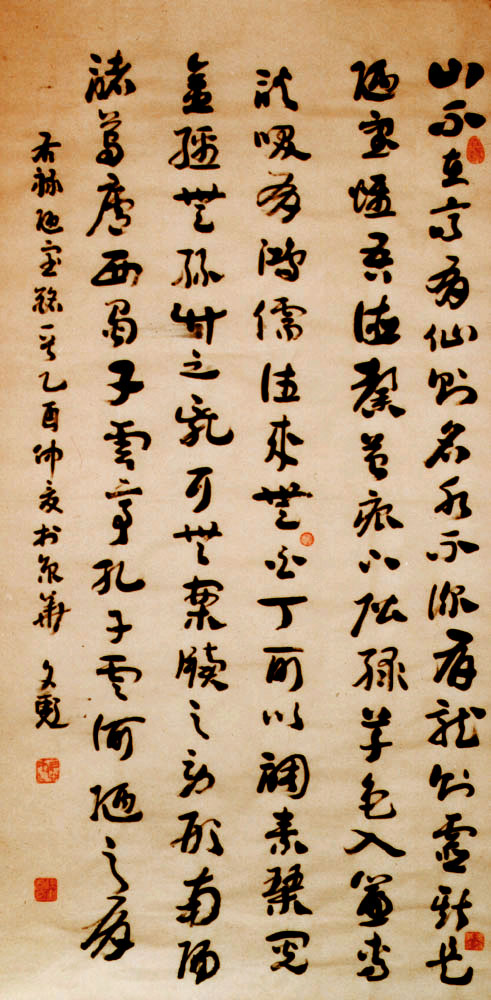 山不在高有仙則名水不深有龍則靈斯是
陋室惟吾德馨苔痕上階綠草色入簾青
談咲有鴻儒往來無白丁可以調素琴閱
金經無絲竹之亂耳無案牘之勞形南陽
諸葛廬西蜀子雲亭孔子雲何陋之有
右錄陋室銘乙酉仲夏於京華 文